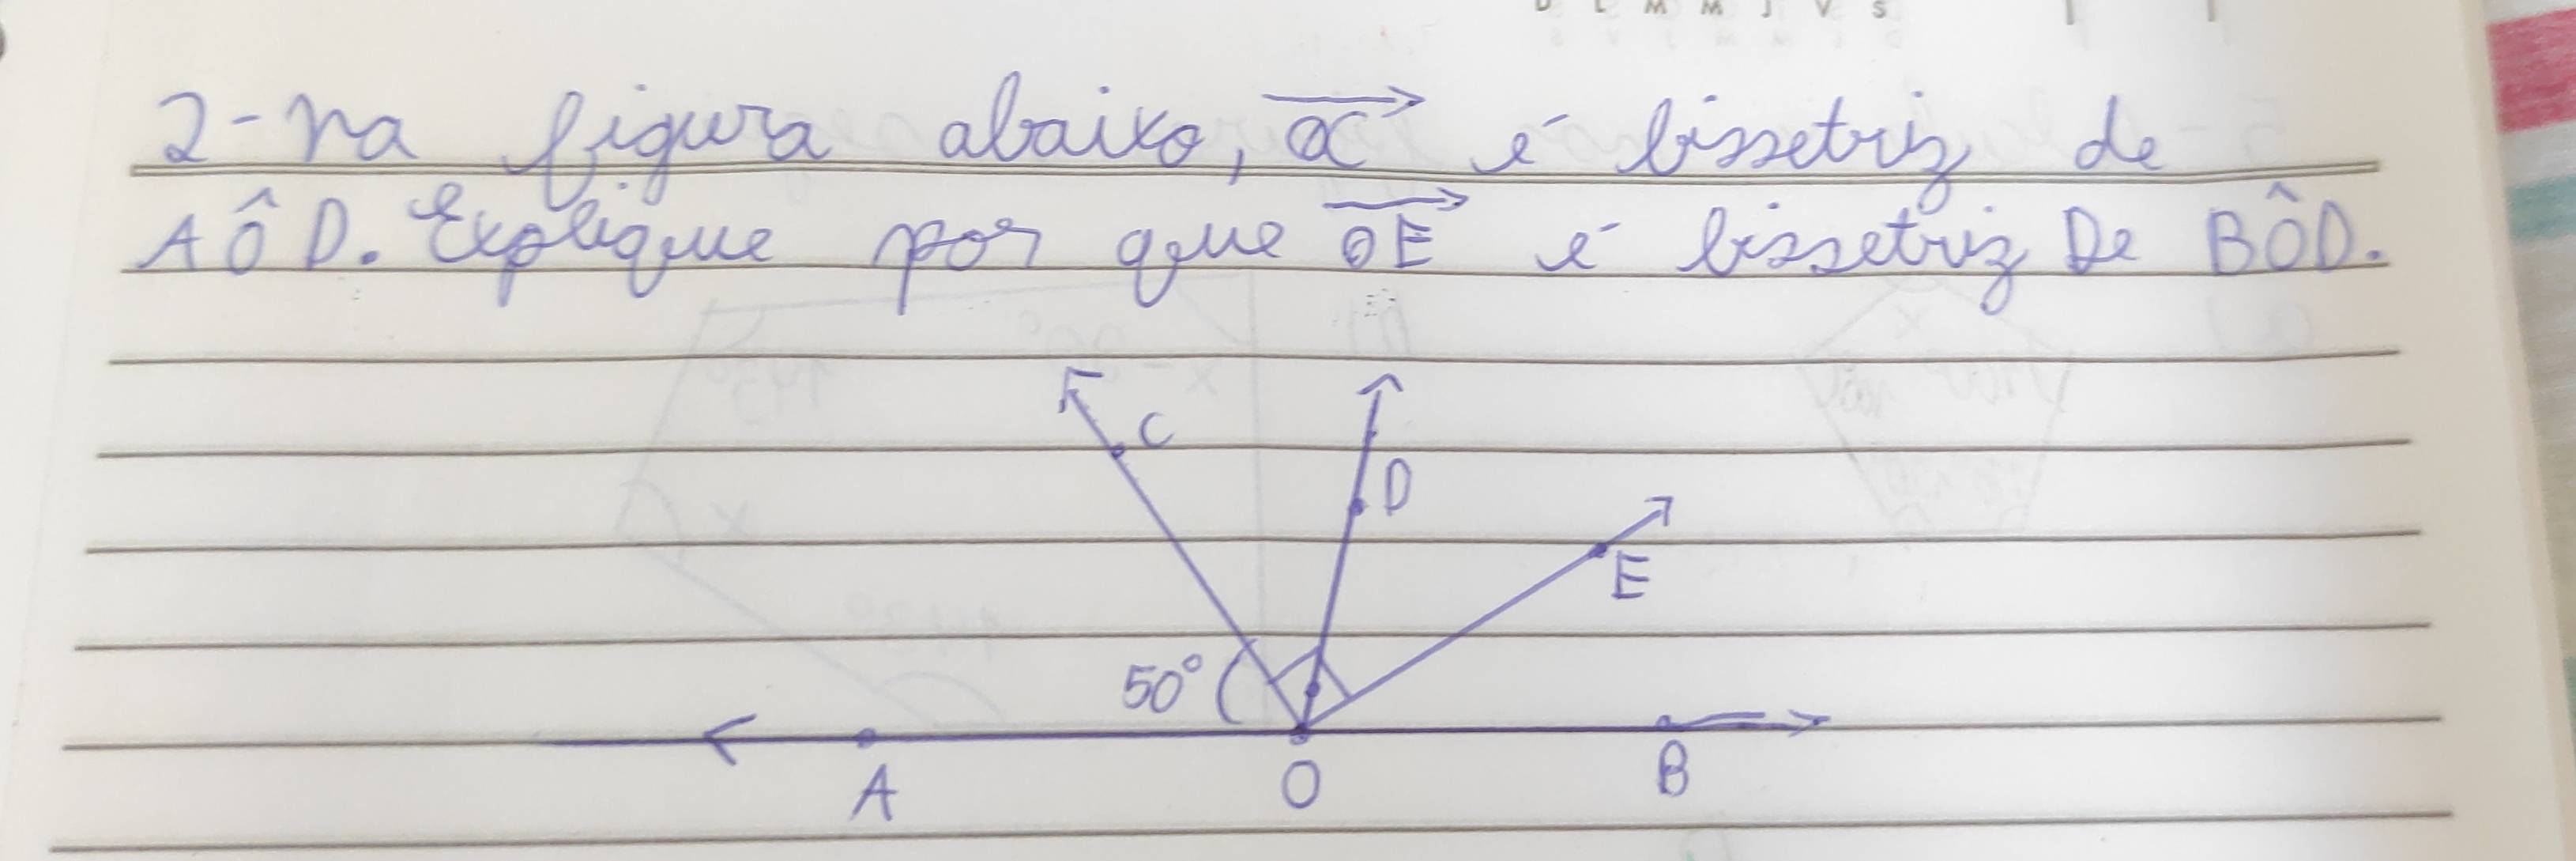 D L M M J V S
2-na figura abaixo, OC é bissetriz de
AÔD. Explique por que OE é bissetriz De BÔD.
C
D
E
50°
A O B